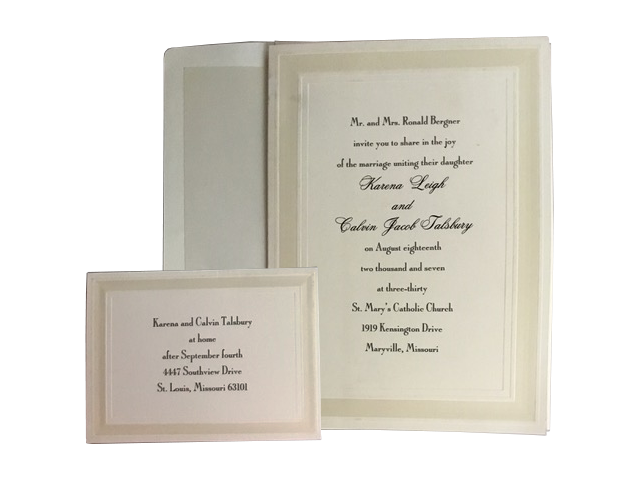 Mr. and Mrs. Ronald Bergner
invite you to share in the joy
of the marriage uniting their daughter
Karena Leigh
and
Calvin Jacob Talsbury
on August eighteenth
two thousand and seven
at three-thirty
St. Mary's Catholic Church
1919 Kensington Drive
Maryville, Missouri
Karena and Calvin Talsbury
at home
after September fourth
4447 Southview Drive
St. Louis, Missouri 63101